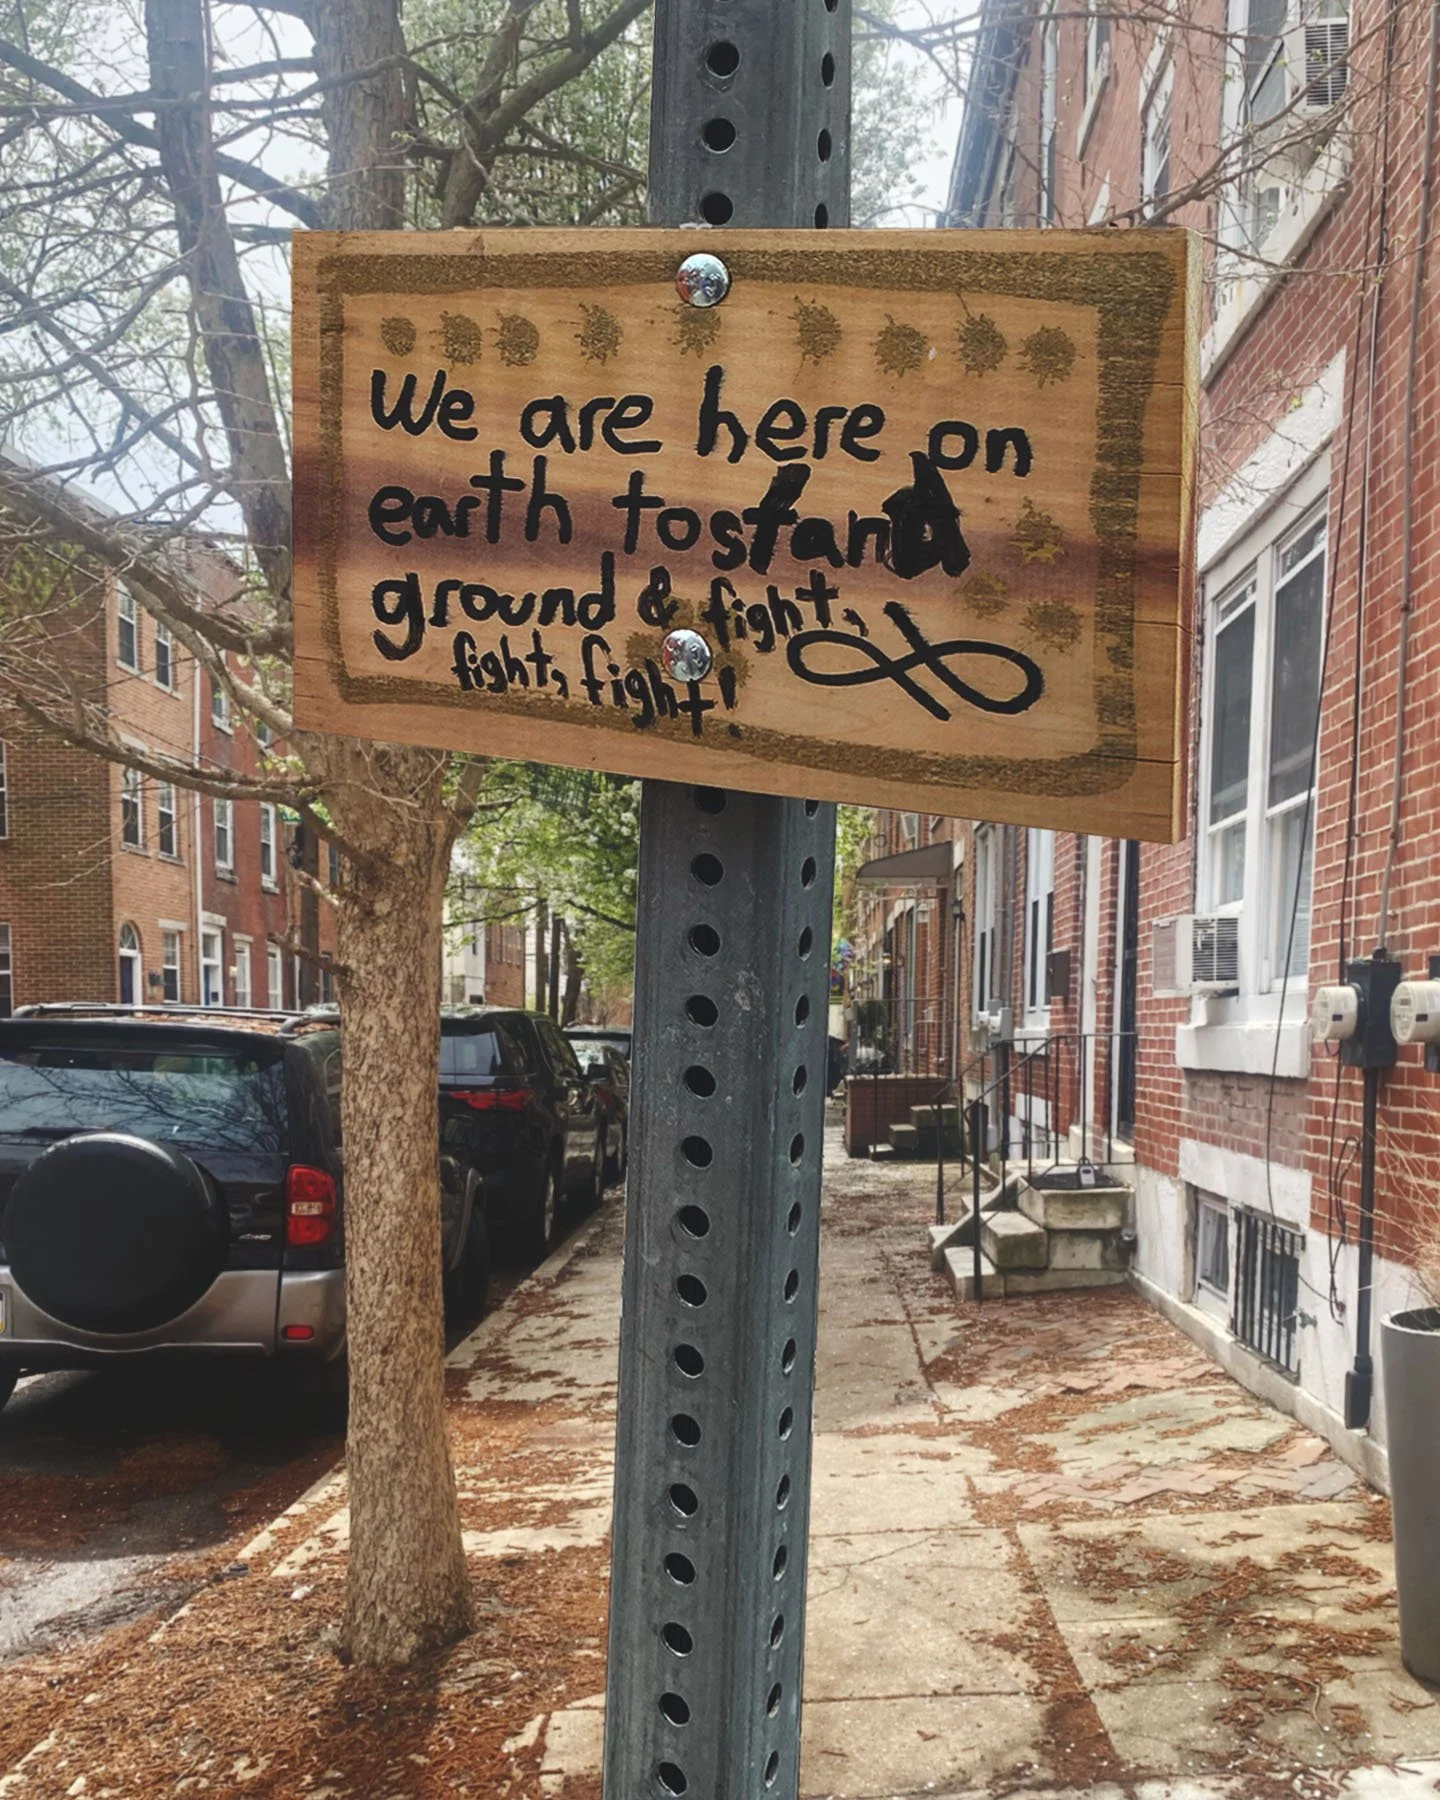 We are here on
earth tostand
ground & fight,
fight, fight!